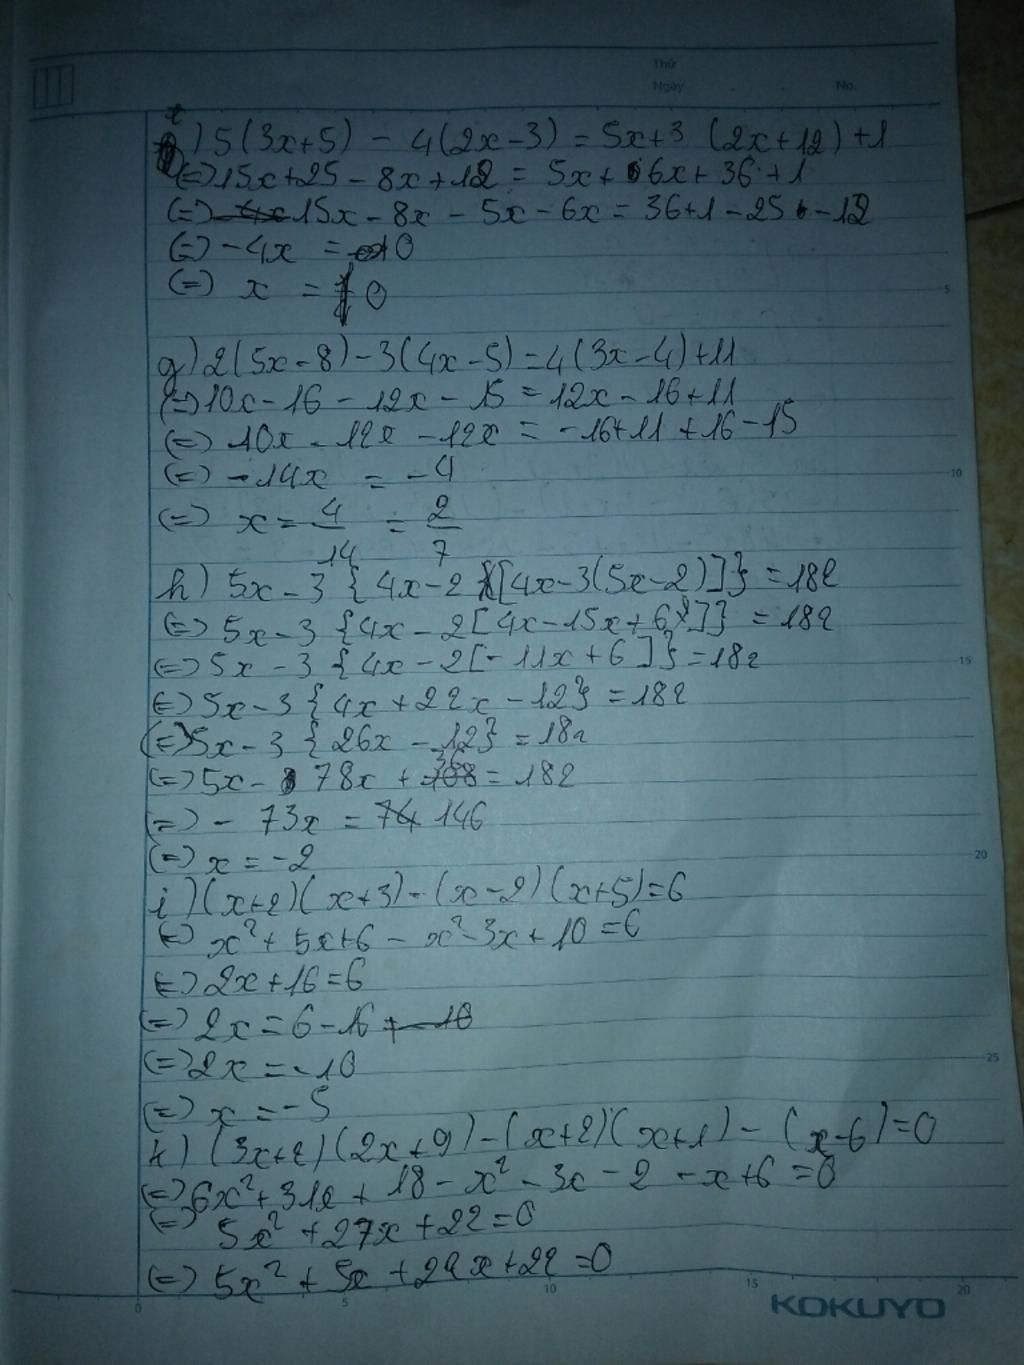 Thứ
Ngày No.
t
) 5(3x+5) - 4(2x-3) = 5x+3 (2x+12)+1
(=) 15x+25 - 8x+12 = 5x+ 6x+36+1
(=) 15x - 8x - 5x - 6x = 36+1-25-12
(=) -4x = 0
(=) x = 0
5
g) 2(5x-8)-3(4x-5)=4(3x-4)+11
(=) 10x-16 - 12x - 15 = 12x - 16+11
(=) 10x - 12x - 12x = -16+11+16-15
(=) -14x = -4
10
(=) x = 4/14 = 2/7
h) 5x-3 {4x-2 [4x-3(5x-2)]} = 182
(=) 5x-3 {4x-2[4x-15x+6]} = 182
(=) 5x-3 {4x-2[-11x+6]} = 182
15
(=) 5x-3 {4x+22x-12} = 182
(=) 5x-3 {26x-12} = 182
(=) 5x - 78x + 36 = 182
(=) - 73x = 146
(=) x = -2
20
i) (x+2)(x+3)-(x-2)(x+5)=6
(=) x²+5x+6 - x²-3x+10=6
(=) 2x+16=6
(=) 2x=6-16
(=) 2x=-10
25
(=) x=-5
k) (3x+2)(2x+9)-(x+2)(x+1)-(x-6)=0
(=) 6x²+31x+18-x²-3x-2-x+6=0
(=) 5x²+27x+22=0
(=) 5x²+5x+22x+22=0
0 5 10 15 20
KOKUYO